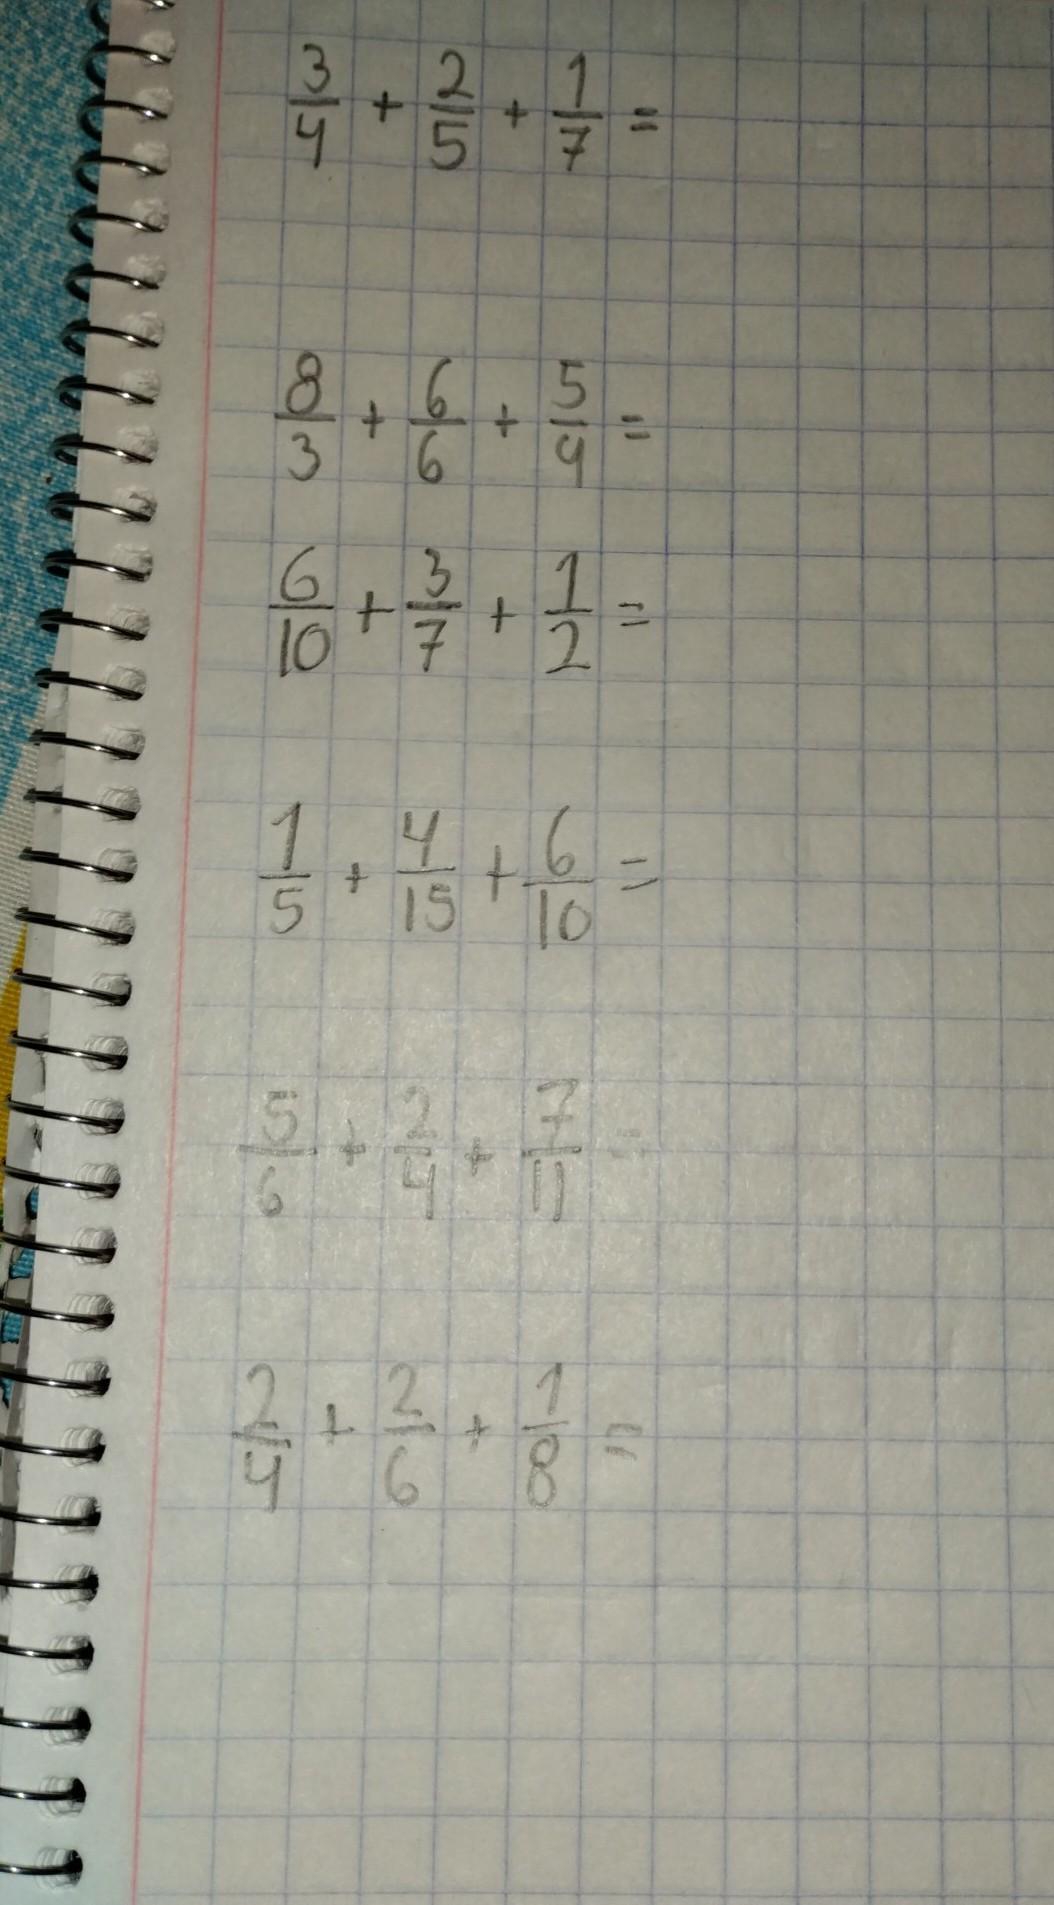 3/4 + 2/5 + 1/7 =
8/3 + 6/6 + 5/4 =
6/10 + 3/7 + 1/2 =
1/5 + 4/15 + 6/10 =
5/6 + 2/4 + 7/11 =
2/4 + 2/6 + 1/8 =